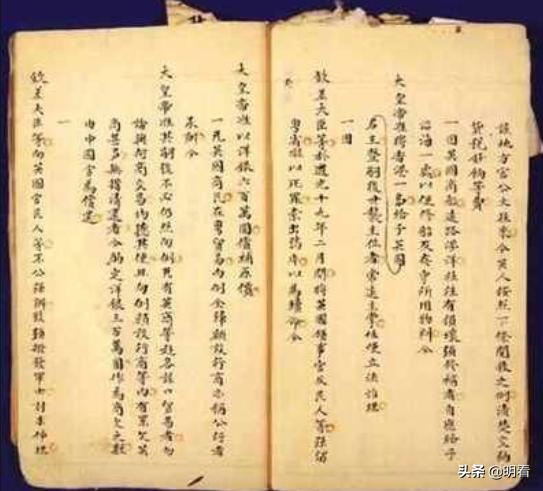 該地方官公文往來令英人按照下條開敘之例清楚交納
貨稅鈔餉等費
一因英國商船遠路涉洋往往有損壞須修補者自應給予
沿海一處以便修船及存守所用物料今
大皇帝准將香港一島給予英國
君主暨嗣後世襲主位者常遠主掌任便立法治理
一因
欽差大臣等於道光十九年二月間將英國領事官及民人等強留
粵省嚇以死罪索出鴉片以為贖命今
大皇帝准以洋銀六百萬圓償補原價
一凡英國商民在粵貿易向例全歸額設行商亦稱公行者
承辦今
大皇帝准其嗣後不必仍照向例凡有英商等赴各該口貿易者勿
論與何商交易均聽其便且向例額設行商等內有累欠英
商甚多無措清還者今酌定洋銀三百萬圓作為商欠之數
由中國官為償還
一
欽差大臣等向英國官民人等不公強辦致須撥發軍士討求伸理
头条 @明看